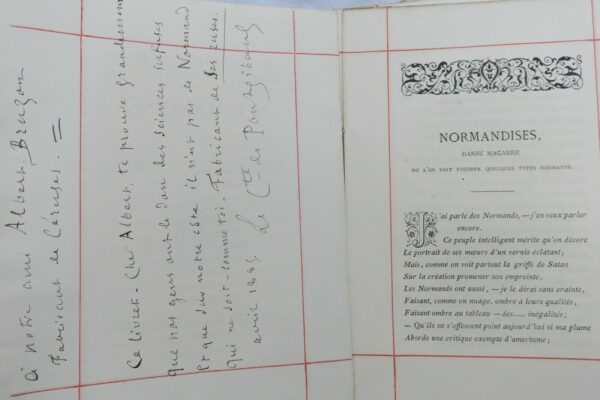 à notre ami Albert Bruzon
Fabricant de Céruses. =
Ce livret - cher Albert, te prouve grandement
que nos gens ont le don des sciences infuses
Et que sur notre côte il n'est pas de Normand
Qui ne soit - comme toi - Fabricant de ses ruses.
Le Cte de
avril 1885
NORMANDISES,
DANSE MACABRE
OU L'ON VOIT FIGURER QUELQUES TYPES NORMANDS.
J'ai parlé des Normands, — j'en veux parler
encore.
Ce peuple intelligent mérite qu'on décore
Le portrait de ses mœurs d'un vernis éclatant;
Mais, comme on voit partout la griffe de Satan
Sur la création promener son empreinte,
Les Normands ont aussi, — je le dirai sans crainte,
Faisant, comme un nuage, ombre a leurs qualités,
Faisant ombre au tableau — des..... inégalités;
— Qu'ils ne s'offensent point aujourd'hui si ma plume
Aborde une critique exempte d'amertume;